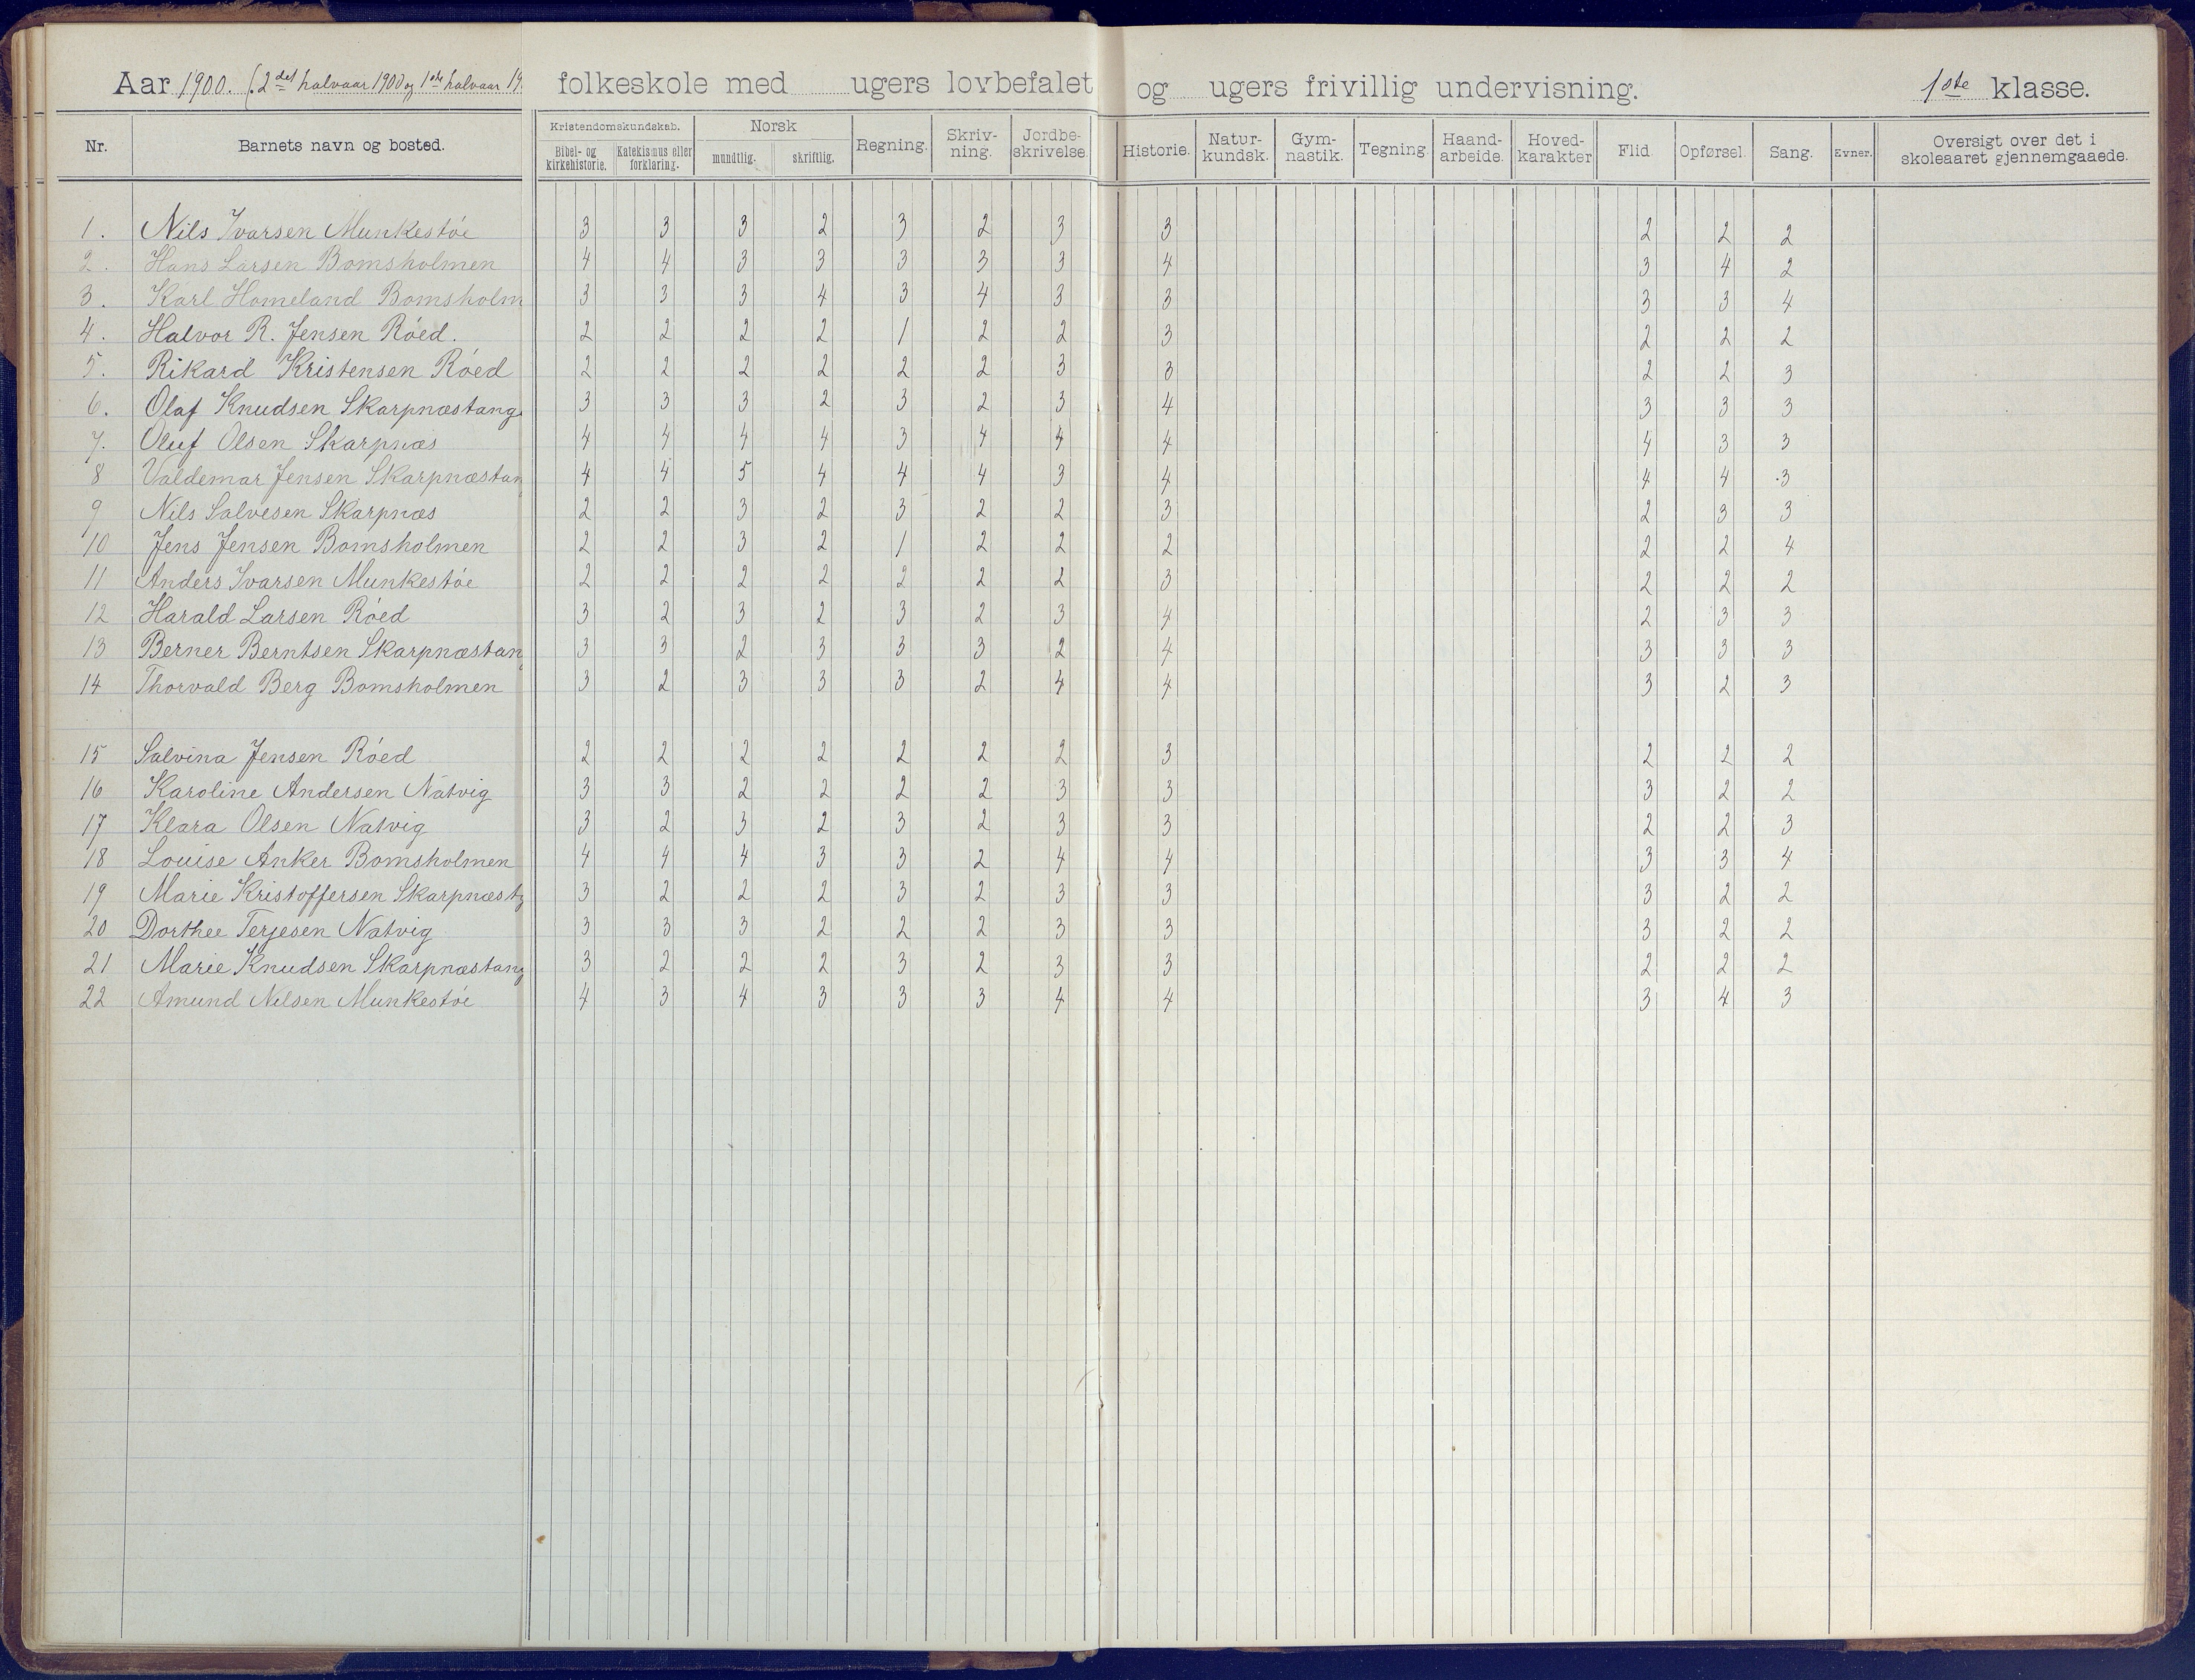 Aar 1900. (2det halvaar 1900 og 1ste halvaar 19 folkeskole med ugers lovbefalet og ugers frivillig undervisning. 1ste klasse.
Nr. Barnets navn og bosted. Kristendomskundskab. Bibel- og kirkehistorie. Katekismus eller forklaring. Norsk mundtlig. skriftlig. Regning. Skriv-ning. Jordbe-skrivelse. Historie. Natur-kundsk. Gym-nastik. Tegning Haand-arbeide. Hoved-karakter Flid. Opførsel. Sang. Evner. Oversigt over det i skoleaaret gjennemgaaede.
1. Nils Ivarsen Munkestøe 3 3 3 2 3 2 3 3 2 2 2
2. Hans Larsen Bomsholmen 4 4 3 3 3 3 3 4 3 4 2
3. Karl Homeland Bomsholm 3 3 3 4 3 4 3 3 3 3 4
4. Halvor R. Jensen Røed. 2 2 2 2 1 2 2 3 2 2 2
5. Rikard Kristensen Røed 2 2 2 2 2 2 3 3 2 2 3
6. Olaf Knudsen Skarpnæstang 3 3 3 2 3 2 3 4 3 3 3
7. Oluf Olsen Skarpnæs 4 4 4 4 3 4 4 4 4 3 3
8 Valdemar Jensen Skarpnæstan 4 4 5 4 4 4 3 4 4 4 3
9 Nils Salvesen Skarpnæs 2 2 3 2 3 2 2 3 2 3 3
10 Jens Jensen Bomsholmen 2 2 3 2 1 2 2 2 2 2 4
11 Anders Ivarsen Munkestøe 2 2 2 2 2 2 2 3 2 2 2
12 Harald Larsen Røed 3 2 3 2 3 2 3 4 2 3 3
13 Berner Berntsen Skarpnæstan 3 3 2 3 3 3 2 4 3 3 3
14 Thorvald Berg Bomsholmen 3 2 3 3 3 2 4 4 3 2 3
15 Salvina Jensen Røed 2 2 2 2 2 2 2 3 2 2 2
16 Karoline Andersen Natvig 3 3 2 2 2 2 3 3 3 2 2
17 Klara Olsen Natvig 3 2 3 2 3 2 3 3 2 2 3
18 Louise Anker Bomsholmen 4 4 4 3 3 2 4 4 3 3 4
19 Marie Kristoffersen Skarpnæstg 3 2 2 2 3 2 3 3 3 2 2
20 Dorthee Terjesen Natvig 3 3 3 2 2 2 3 3 3 2 2
21 Marie Knudsen Skarpnæstang 3 2 2 2 3 2 3 3 2 2 2
22 Amund Nilsen Munkestøe 4 3 4 3 3 3 4 4 3 4 3